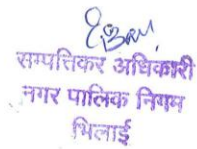 सम्पत्तिकर अधिकारी
नगर पालिक निगम
भिलाई